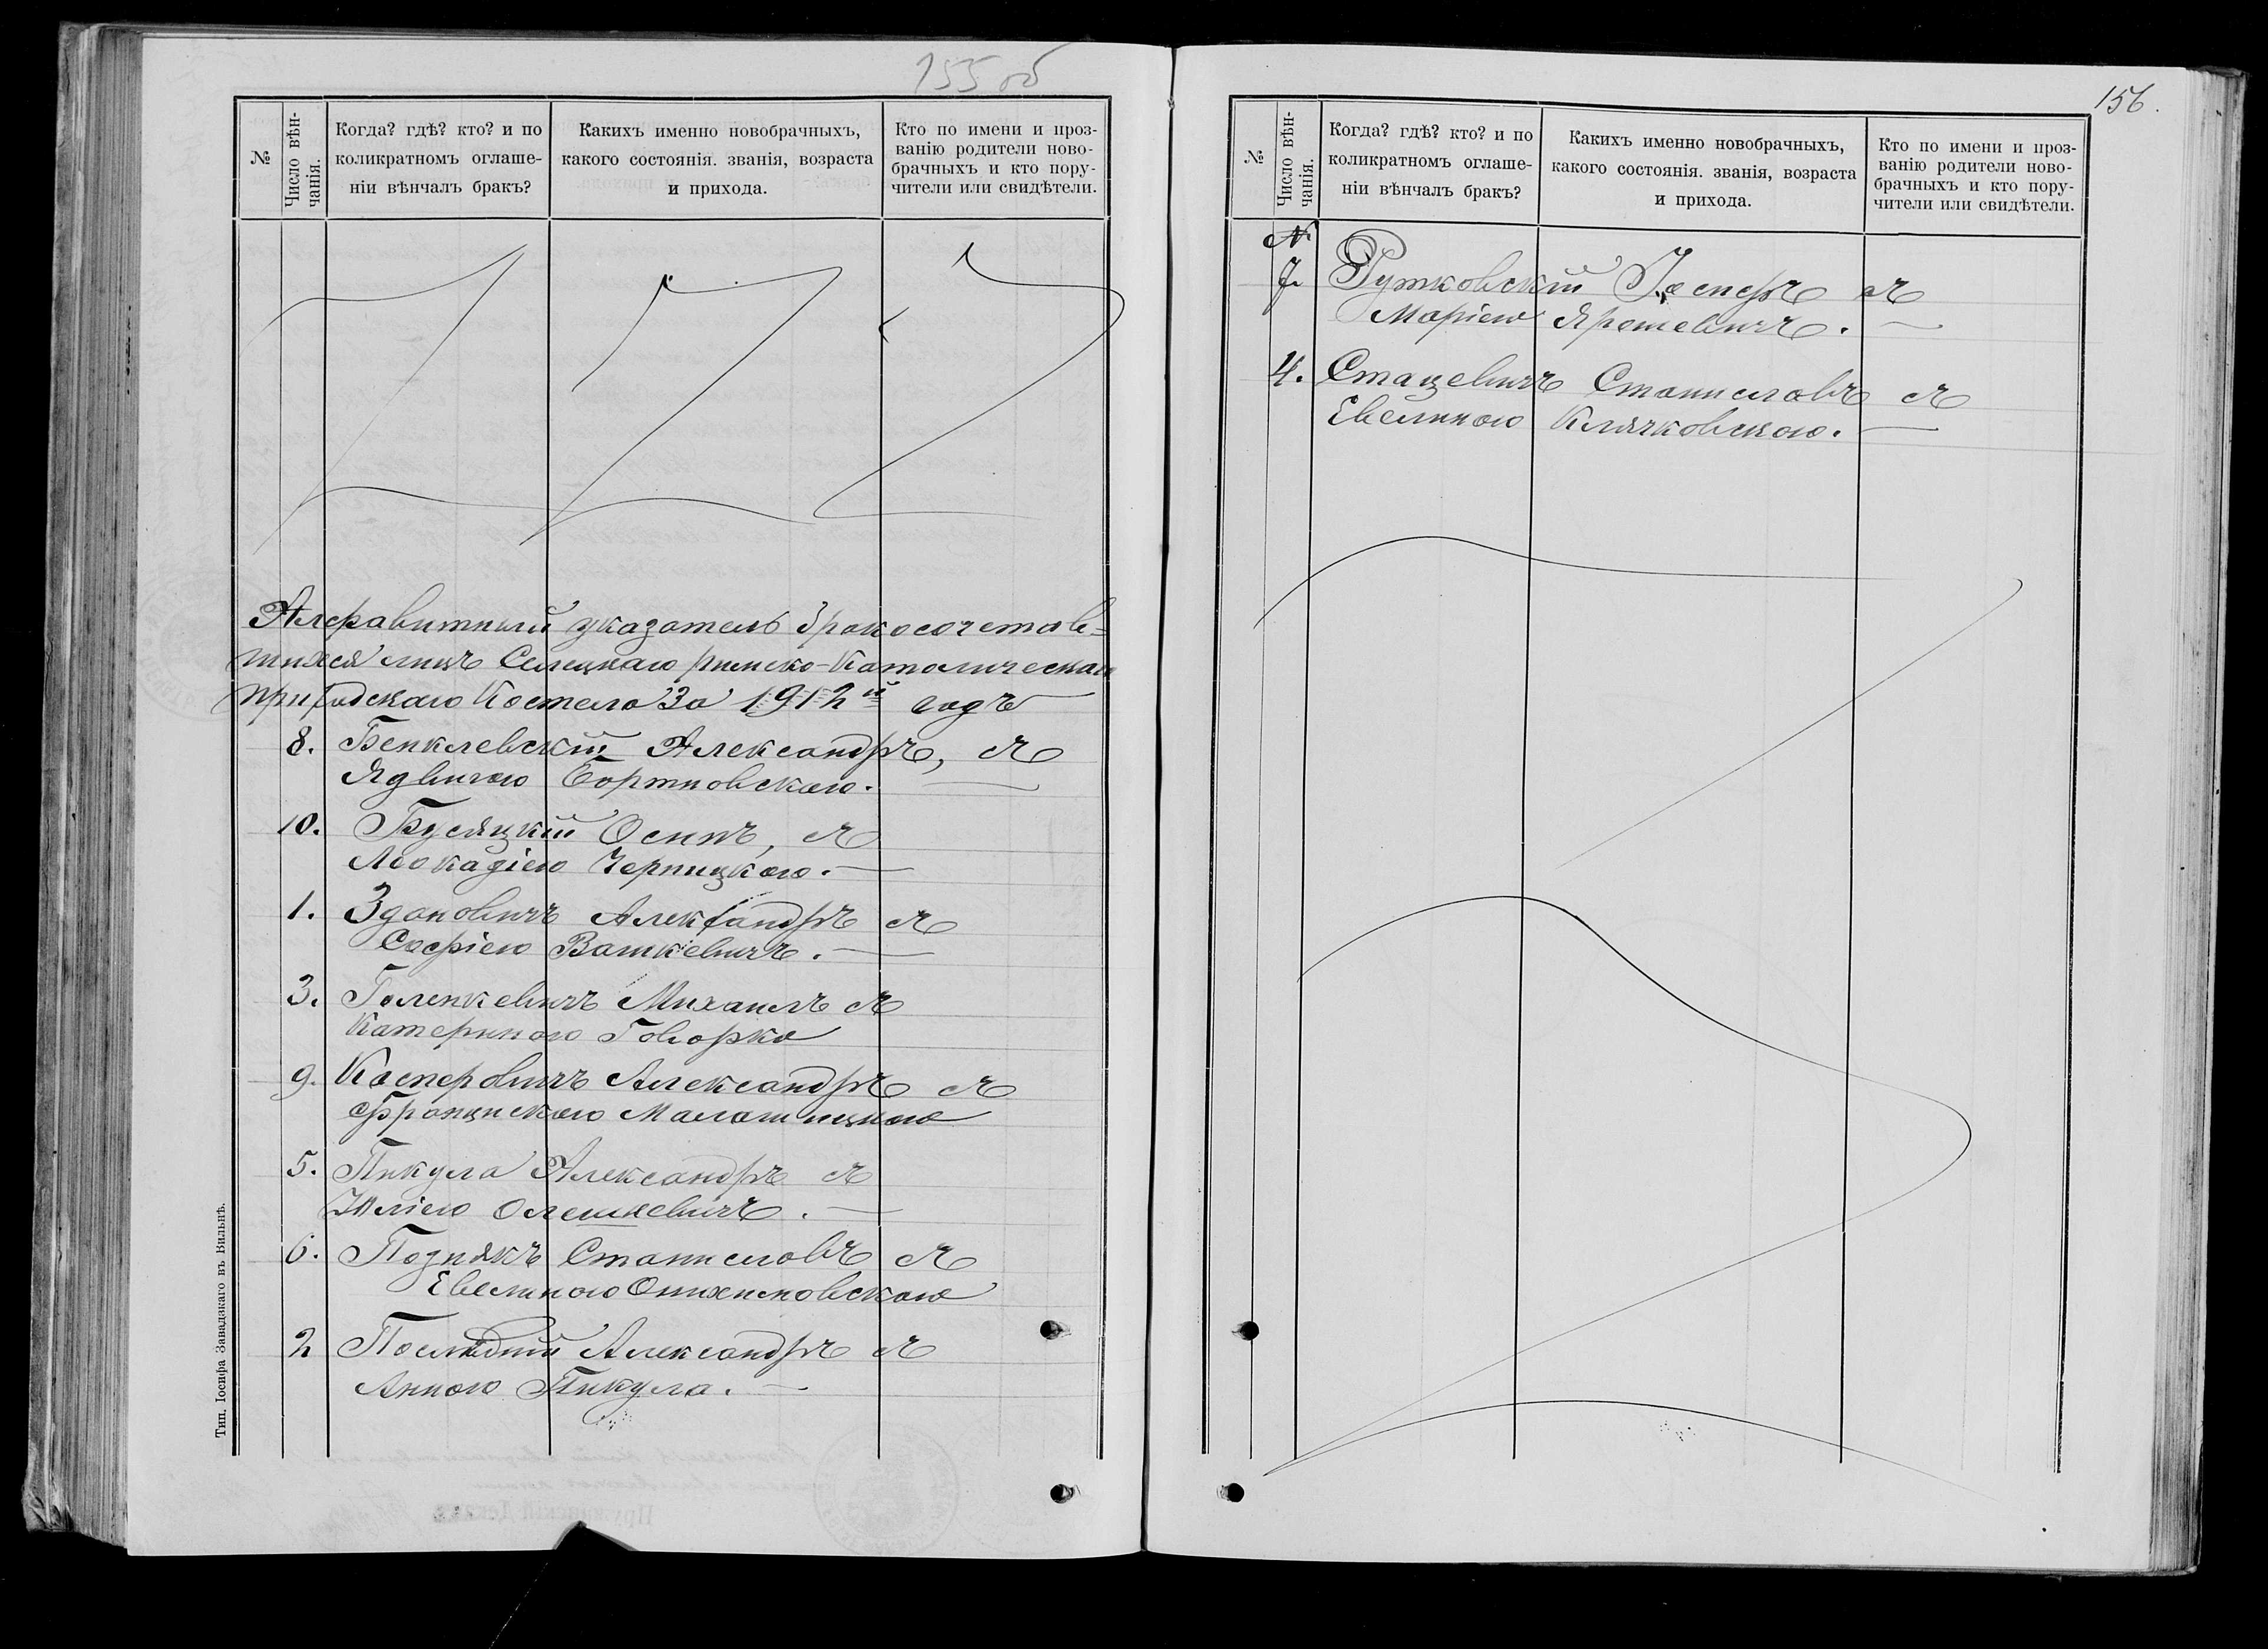 155 об
№
Число вѣн-
чанія.
Когда? гдѣ? кто? и по
коликратномъ оглаше-
ніи вѣнчалъ бракъ?
Какихъ именно новобрачныхъ,
какого состоянія. званія, возраста
и прихода.
Кто по имени и проз-
ванію родители ново-
брачныхъ и кто пору-
чители или свидѣтели.
Алфавитный указатель бракосочетав=
шихся лицъ Селецкаго римско-Католическаго
приходскаго Костела За 1912й годъ
8. Бенклевскій Александръ, съ
Ядвигою Бортновскою.
10. Бусяцкій Осипъ, съ
Леокадіею Черницкою.
1. Здановичъ Александръ съ
Софіею Вашкевичъ.
3. Голенкевичъ Михаилъ съ
Катериною Говорко
9. Касперовичъ Александръ съ
Францискою Малашицкою
5. Пикула Александръ съ
Юліею Олешкевичъ.
6. Познякъ Станиславъ съ
Евелиною
2 Послѣдній Александръ съ
Анною Пикула.
Тип. Іосифа Завадзкаго въ Вильнѣ.
156.
№
Число вѣн-
чанія.
Когда? гдѣ? кто? и по
коликратномъ оглаше-
ніи вѣнчалъ бракъ?
Какихъ именно новобрачныхъ,
какого состоянія. званія, возраста
и прихода.
Кто по имени и проз-
ванію родители ново-
брачныхъ и кто пору-
чители или свидѣтели.
№
7. Рутковскій Іосифъ съ
Маріею Ярошевичъ.
4. Стацевичъ Станиславъ съ
Евелиною Клячковскою.